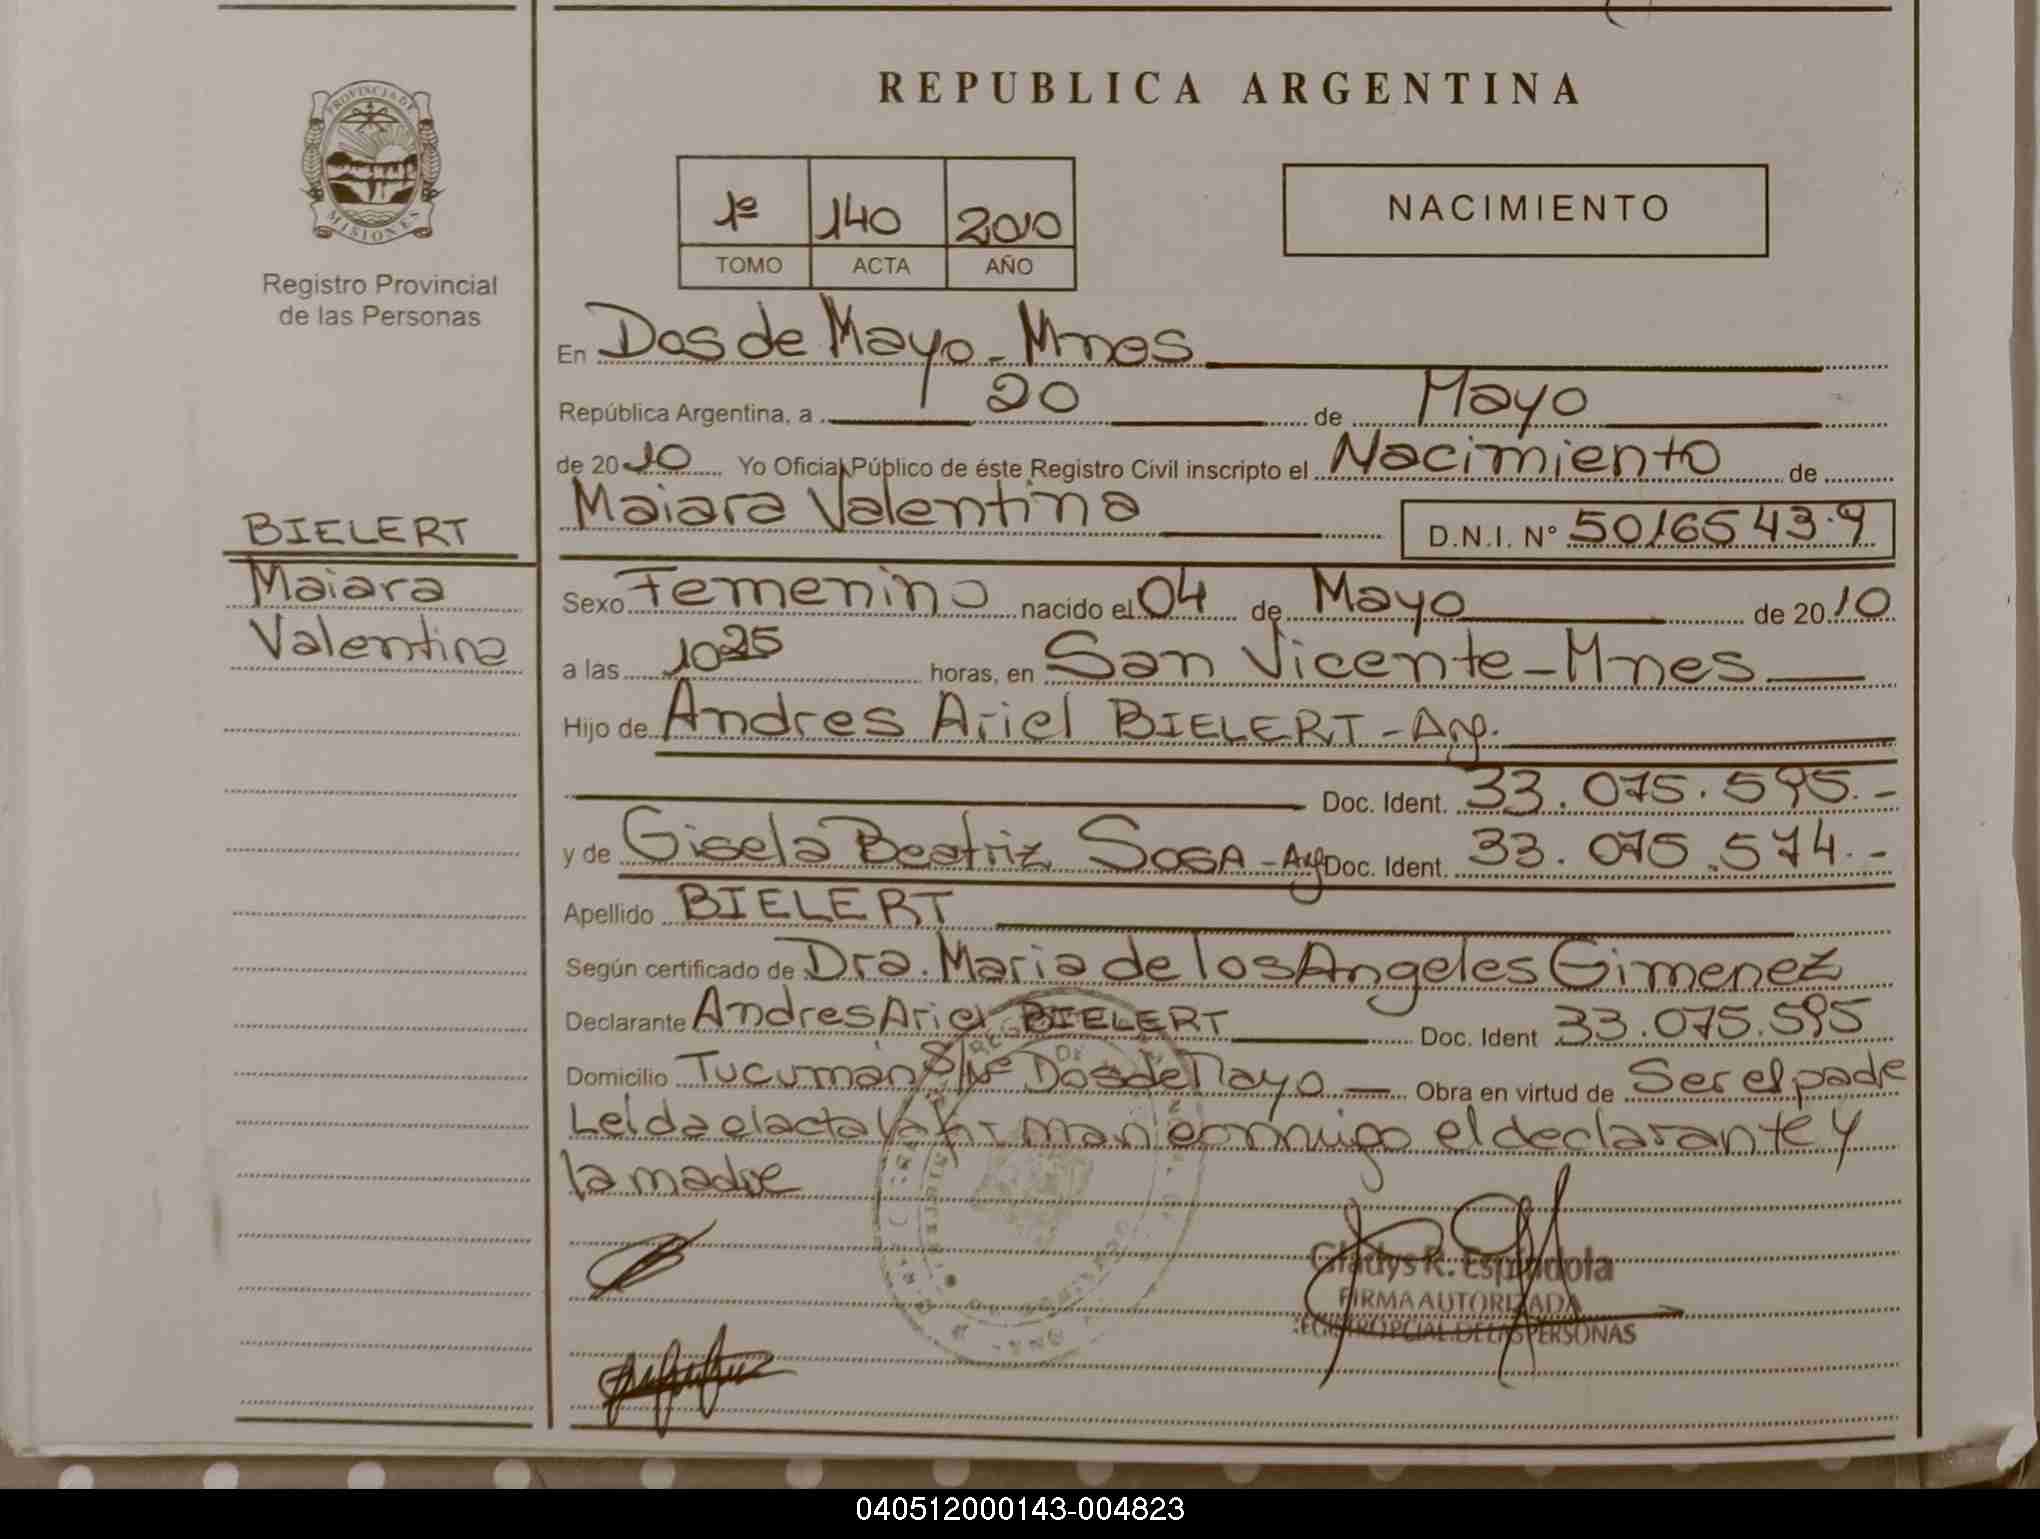 REPUBLICA ARGENTINA
PROVINCIA DE
MISIONES
Registro Provincial
de las Personas
1º 140 2010
TOMO ACTA AÑO
NACIMIENTO
En Dos de Mayo - Mnes
República Argentina, a 20 de Mayo
de 2010 Yo Oficial Público de éste Registro Civil inscripto el Nacimiento de
Maiara Valentina D.N.I. Nº 50165439
BIELERT
Maiara
Valentina
Sexo Femenino nacido el 04 de Mayo de 2010
a las 10 25 horas, en San Vicente - Mnes
Hijo de Andres Ariel BIELERT - Arg.
Doc. Ident. 33.075.595.-
y de Gisela Beatriz SOSA - Arg Doc. Ident. 33.075.574.-
Apellido BIELERT
Según certificado de Dra. Maria de los Angeles Gimenez
Declarante Andres Ariel BIELERT Doc. Ident 33.075.595
Domicilio Tucumán S/Nº Dos de Mayo Obra en virtud de Ser el padre
Leida el acta la firman conmigo el declarante y
la madre
Gladys R. Espindola
FIRMA AUTORIZADA
REGISTRO PCIAL. DE LAS PERSONAS
040512000143-004823